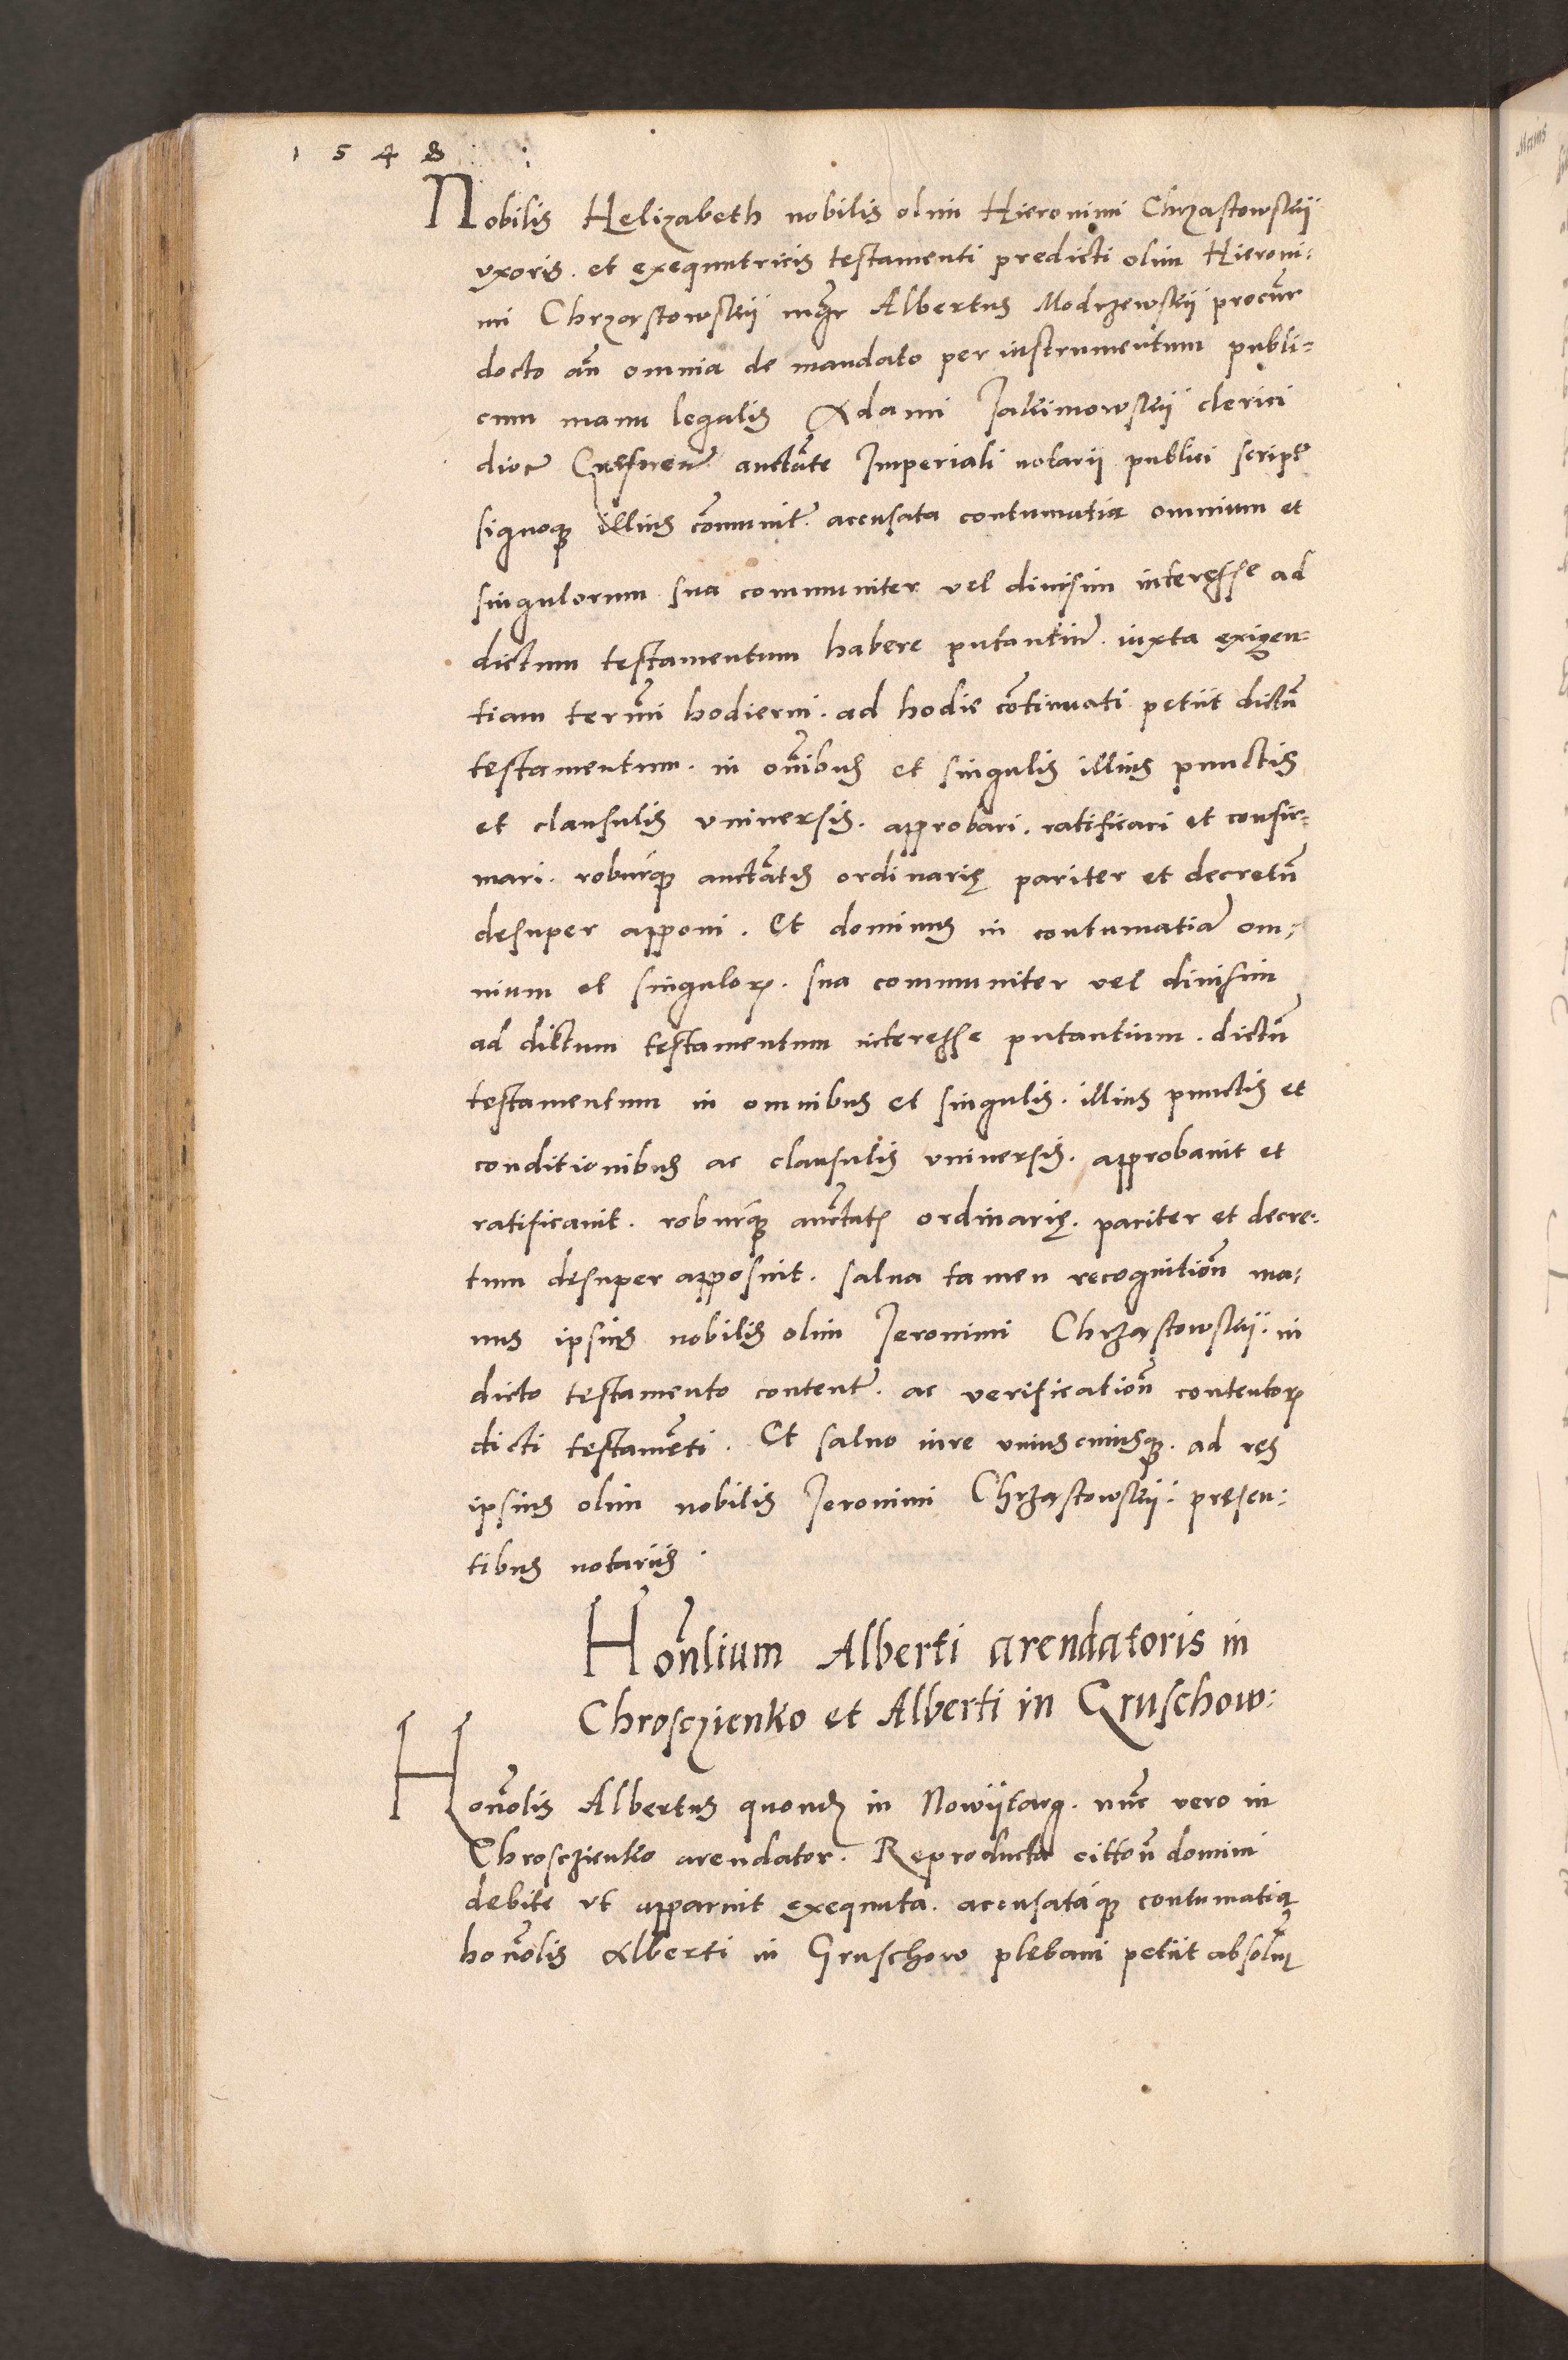 1 5 4 8
Nobilis Helizabeth nobilis olim Hieronimi Chrzastowskij
vxoris. et exequutricis testamenti predicti olim Hieroni:
mi Chrzastowskij mgr̃ Albertus Modrzewskij procũr
docto añ omnia de mandato per instrumentum publi:
cum manu legalis Adami Jakimowskij clerici
dioc̃ Gnesneñ auctãte Imperiali notarii publici script̃
signoq̃ illius cõmunit̃. accusata contumatia omnium et
singulorum sua communiter vel diuisim interesse ad
dictum testamentum habere putantiũ. iuxta exigen:
tiam termĩni hodierni. ad hodie cõtinuati petiit dictũ
testamentum. in oĩbus et singulis illius punctis
et clausulis vniuersis. approbari. ratificari et confir:
mari. roburq̃ auctãtis ordinarię pariter et decretũ
desuper apponi. Et dominus in contumatiã om:
nium et singuloꝝ. sua communiter vel diuisim
ad dictum testamentum interesse putantium. dictũ
testamentum in omnibus et singulis. illius punctis et
conditionibus ac clausulis vniuersis. approbauit et
ratificauit. roburq̃ auctãt̃ ordinarię. pariter et decre:
tum desuper apposuit. salua tamen recognitioñ ma:
nus ipsius nobilis olim Jeronimi Chrzastowskij. in
dicto testamento content̃. ac verificatioñ contentoꝝ
dicti testamẽti. Et saluo iure vniuscuiusq̃. ad res
ipsius olim nobilis Jeronimi Chrzastowskij. pręsen:
tibus notariis.
Honñlium Alberti arendatoris in
Chrosczienko et Alberti in Gruschow:
Honõlis Albertus quondã in Nowijtarg. nũc vero in
Chrosczienko arendator. Reproducta cittoñ domini
debite vt apparuit exequuta. accusataq̃ contumatia
honõlis Alberti in Gruschow plebani petiit absolui